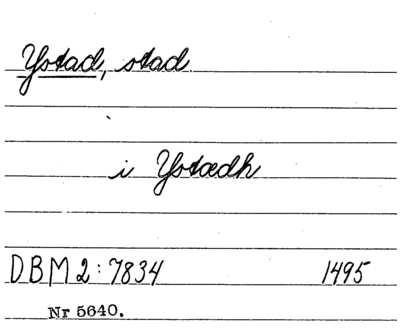 Ystad, stad
i Ystædh
DBM 2:7834 1495
Nr 5640.